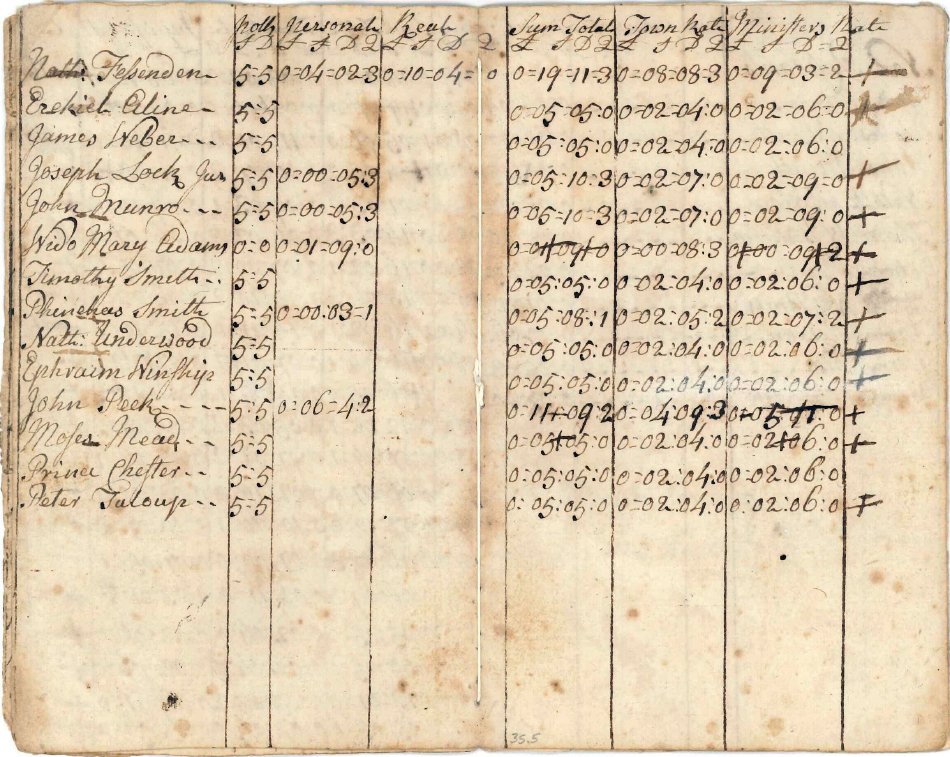 Polls Personal Real Sum Total Town Rate Ministers Rate
£ D £ S D Q £ S D Q £ S D Q £ S D Q £ S D = Q
Nath: Fessenden 5=5 0=04=02=3 0=10=04= 0 0=19=11=3 0=08=08=3 0=09=03=2 +
Ezekiel Cline - 5=5 0=05=05:0 0=02=04:0 0=02=06=0 +
James Weber - - - 5=5 0=05:05:0 0=02=04:0 0=02=06:0
Joseph Lock Jun 5=5 0=00=05:3 0=05=10=3 0=02=07:0 0=02=09=0 +
John Munro - - - 5=5 0=00=05:3 0=05=10=3 0=02=07:0 0=02=09:0 +
Wido Mary Adams 0=0 0=01=09:0 0=01=09=0 0=00=08:3 0=00=09=2 +
Timothy Smith - . 5=5 0=05:05:0 0=02=04:0 0=02=06:0 +
Phinehas Smith 5=5 0=00:03=1 0=05:08:1 0=02:05:2 0=02=07:2 +
Nath: Underwood 5=5 0=05:05:0 0=02:04:0 0=02:06:0 +
Ephraim Winship 5=5 0=05:05:0 0=02:04:0 0=02=06:0 +
John Peck - - - 5:5 0=06=4:2 0=11=09:2 0=04:09:3 0=05 :0 +
Moses Mead - - 5=5 0=05 05:0 0=02:04:0 0=02 06:0 +
Prince Chester - - 5=5 0=05:05:0 0=02:04:0 0=02:06:0
Peter - - 5=5 0:05:05:0 0=02:04:0 0:02:06:0 +
35.5